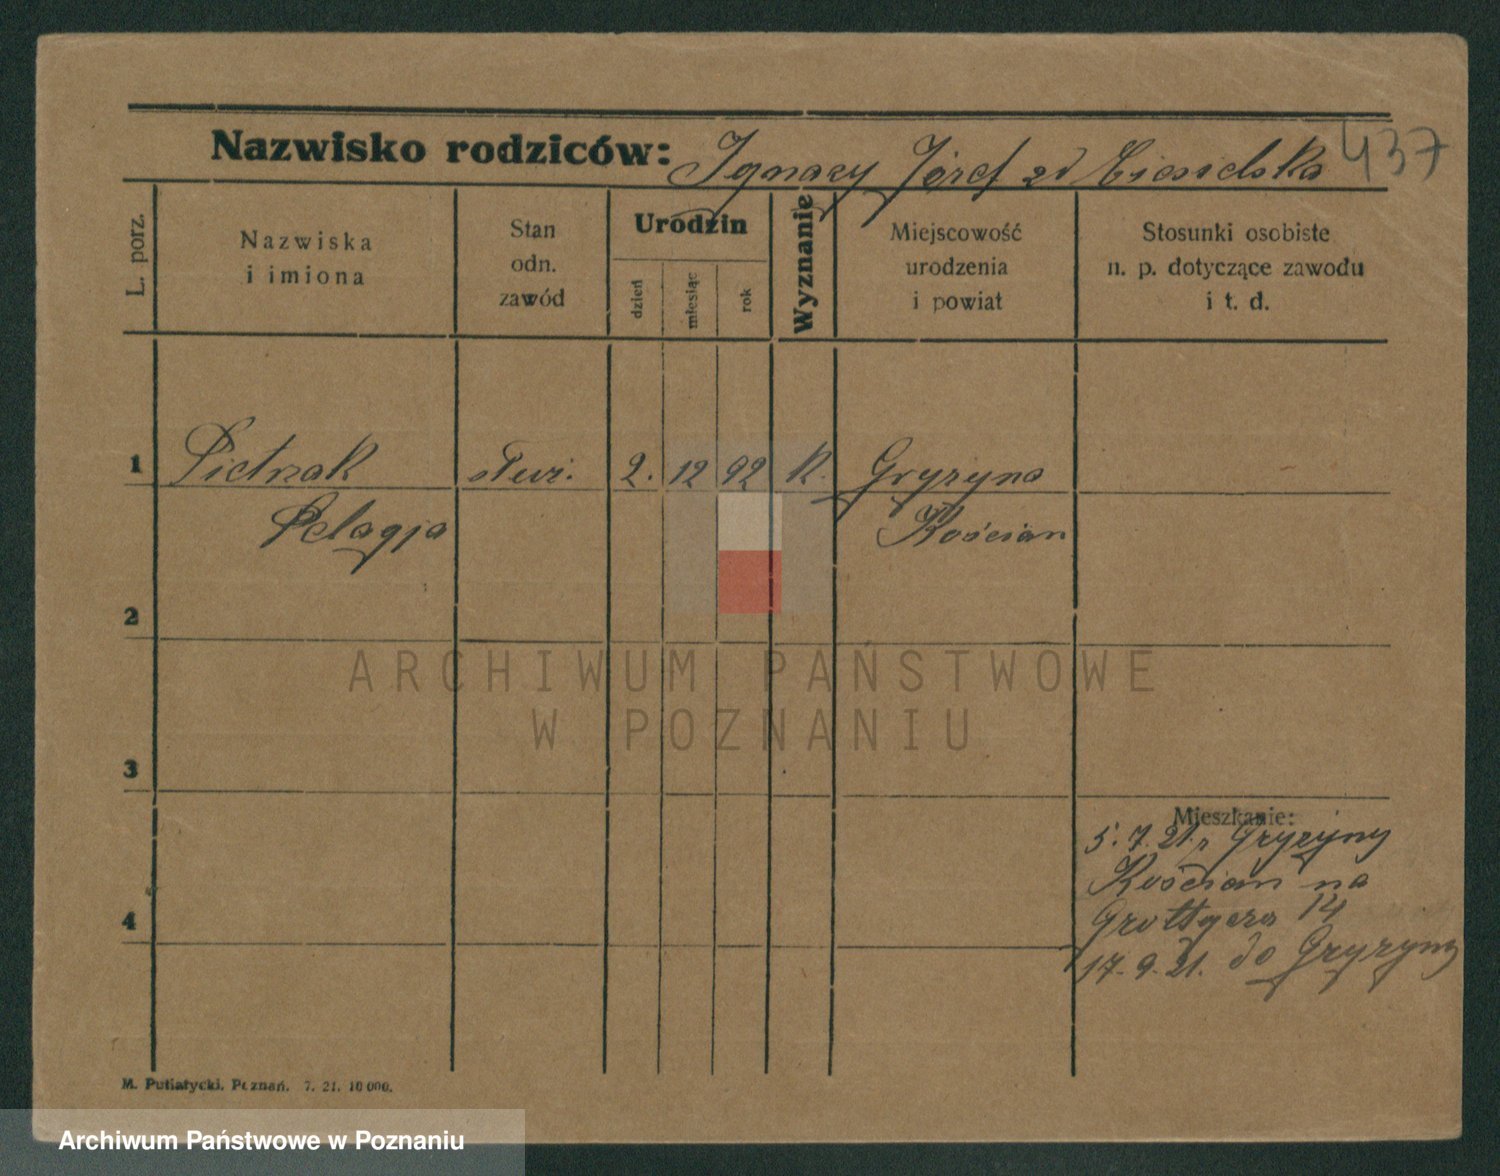 Nazwisko rodziców: Ignacy Józef zd 437
L. porz.
Nazwiska
i imiona
Stan
odn.
zawód
Urodzin
dzień
miesiąc
rok
Wyznanie
Miejscowość
urodzenia
i powiat
Stosunki osobiste
n. p. dotyczące zawodu
i t. d.
1 Pietrzak 2. 12 92 K. Gryzyna
Pelagja Kościan
2
ARCHIWUM PAŃSTWOWE
W POZNANIU
3
Mieszkanie:
5.7.21. z Gryzyny
Kościan na
4 Grottgera 14
17.9.21. do Gryzyny
M. Putiatycki, Poznań. 7. 21. 10 000.
Archiwum Państwowe w Poznaniu